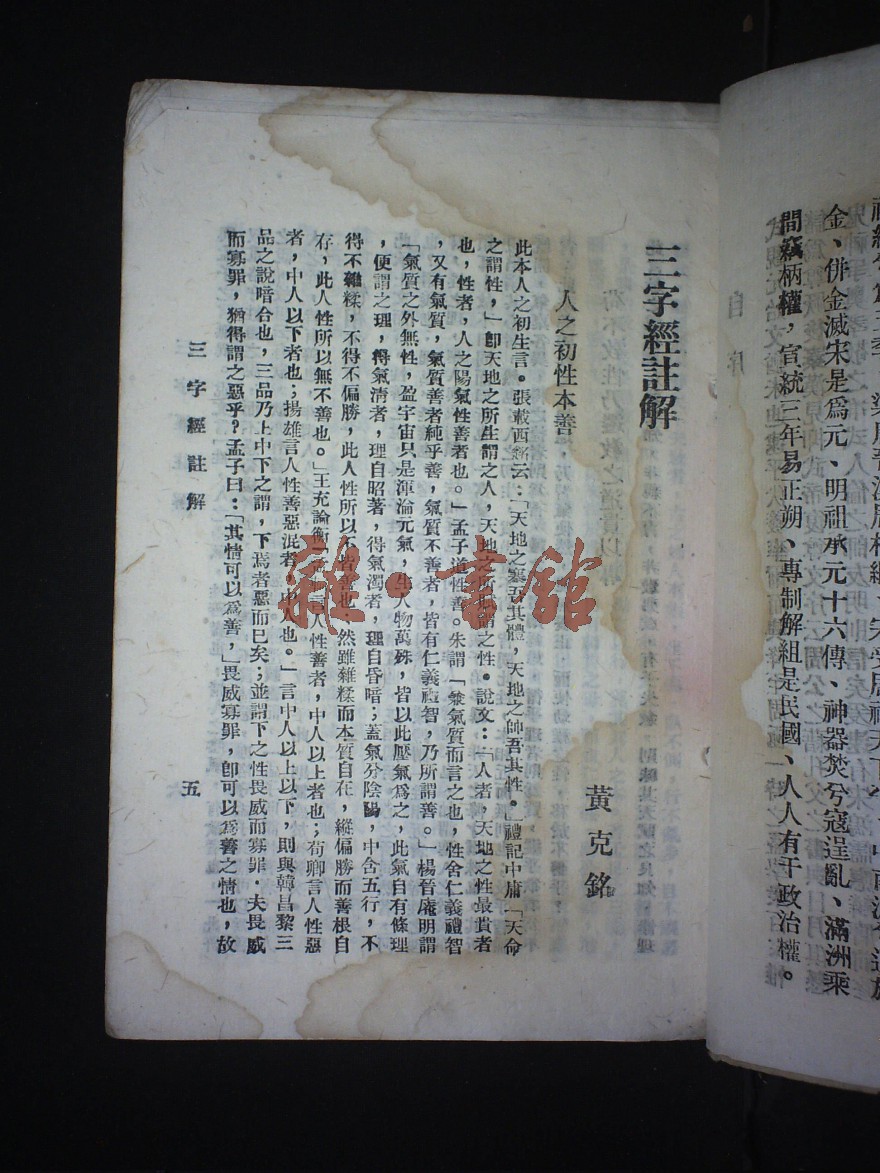 金、併金滅宋是爲元、明祖承元十六傳、神器焚兮寇逞亂、滿洲乘
間竊柄權，宣統三年易正朔、專制解組是民國、人人有干政治權。
自序
三字經註解
黃克銘
人之初性本善
此本人之初生言。張載西銘云：「天地之塞吾其體，天地之帥吾其性。」禮記中庸「天命
之謂性，」卽天地之所生謂之人，天地之所 謂之性。說文：「人者，天地之性最貴者
也，性者，人之陽氣性善者也。」孟子道性善。朱謂「兼氣質而言之也，性舍仁義禮智
，又有氣質，氣質善者純乎善，氣質不善者，皆有仁義禮智，乃所謂善。」楊晉庵明謂
「氣質之外無性，盈宇宙只是渾淪元氣，生人物萬殊，皆以此壓氣爲之，此氣自有條理
，便謂之理，得氣清者，理自昭著，得氣濁者，理自昏暗；蓋氣分陰陽，中含五行，不
得不雜糅，不得不偏勝，此人性所以不皆善也，然雖雜糅而本質自在，縱偏勝而善根自
存，此人性所以無不善也。」王充論衡 言人性善者，中人以上者也；荀卿言人性惡
者，中人以下者也；揚雄言人性善惡混者，中人也。」言中人以上以下，則與韓昌黎三
品之說暗合也，三品乃上中下之謂，下焉者惡而已矣；並謂下之性畏威而寡罪．夫畏威
而寡罪，猶得謂之惡乎？孟子曰：「其情可以爲善，」畏威寡罪，卽可以爲善之情也，故
三字經註解
五
雜·書館